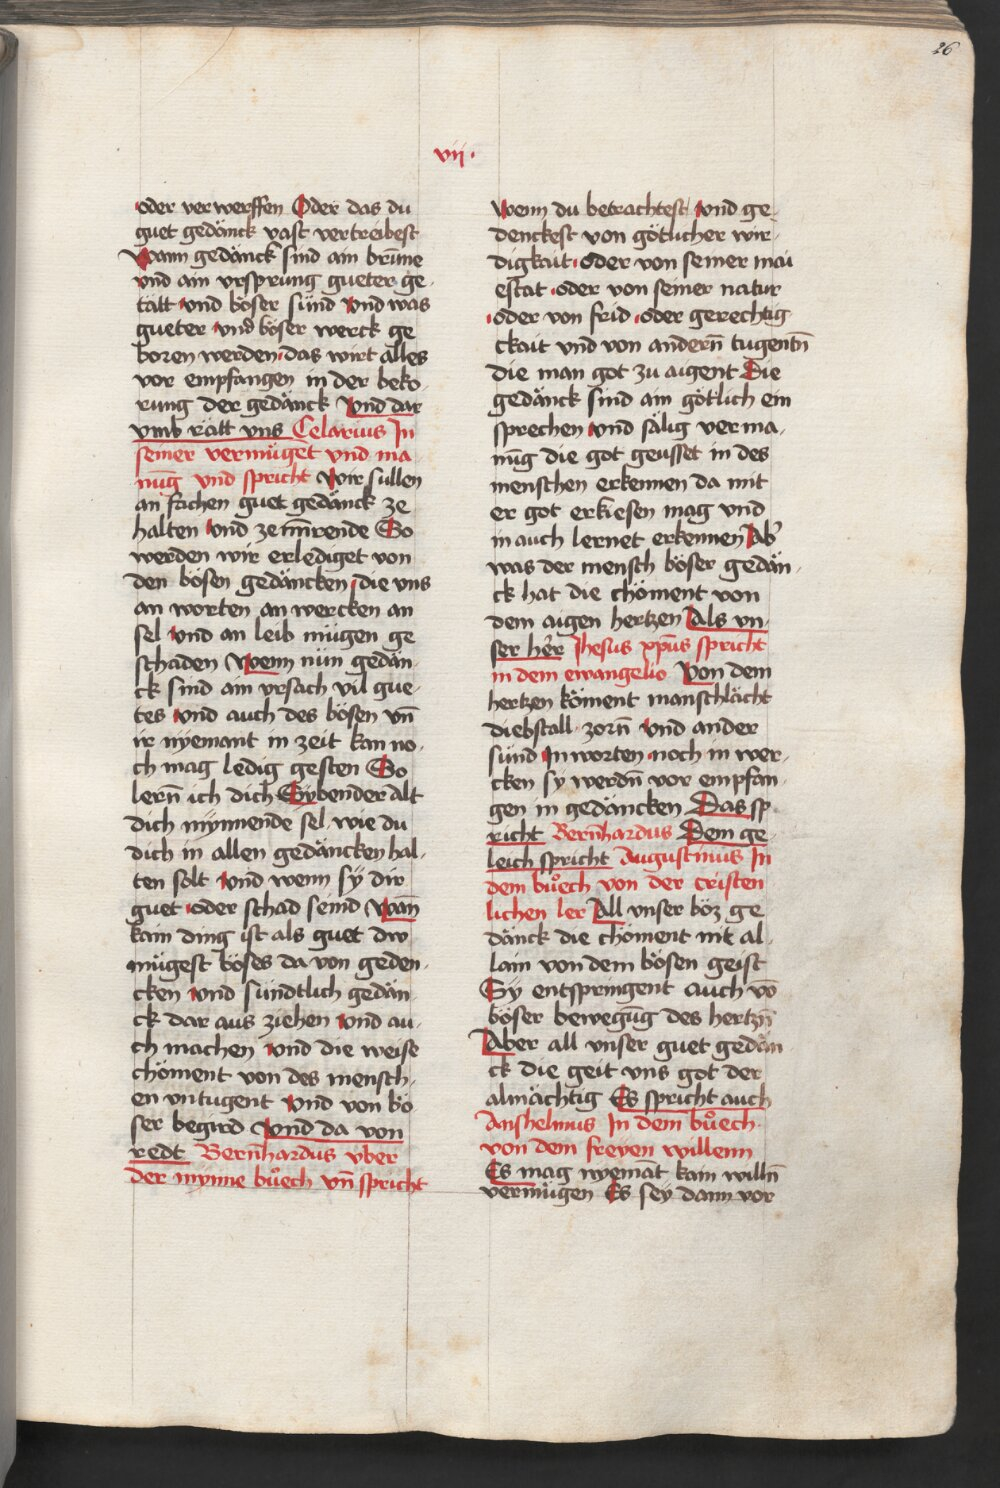 26
vij·
oder verwerffen Oder das du
guet gedänck vast vertreibest
Wann gedänck sind ain brūne
vnd ain vrsprung gueter ge
tätt vnd böser sünd vnd was
gueter vnd böser werck ge
boren werden das wirt alles
vor empfangen in der beko
rung der gedänck Vnd dar
vmb rätt vns Celarius In
seiner vermüget vnd ma
nūg vnd spricht Wir sullen
an fachen guet gedänck ze
halten vnd ze So
werden wir erlediget von
den bösen gedäncken die vns
an worten an wercken an
sel vnd an leib mügen ge
schaden Wenn nün gedän
ck sind ain vrsach vil gue
tes vnd auch des bösen vn̄
ir nyemant in zeit kan no
ch mag ledig gesten So
lern̄ ich dich Sybender alt
dich mynnende sel wie du
dich in allen gedäncken hal
ten solt vnd wenn sy dir
guet oder schad seind Wan̄
kain ding ist als guet dw
mügest böses da von geden
cken vnd sündtlich gedän
ck dar aus ziehen vnd au
ch machen vnd die weise
chöment von des mensch
en vntugent vnd von bö
ser begird Vnd da von
redt Bern̄hardus vber
der mynne bůech vn̄ spricht
Wenn du betrachtest vnd ge
denckest von götlicher wir
digkait oder von seiner mai
estat oder von seiner natur
oder von frid oder gerechtig
ckait vnd von andern̄ tugentn̄
die man got zu aigent Die
gedänck sind ain götlich ein
sprechen vnd sälig verma
nūg die got geusset in des
menschen erkennen da mit
er got erkiesen mag vnd
in auch lernet erkennen Ab'
was der mensch böser gedän
ck hat die chöment von
dem aigen hertzen Als vn
ser he'r Jhesus xp̄us spricht
in dem ewangelio Von dem
hertzen köment manschlächt
diebstall zorn̄ vnd ander
sünd In worten noch in wer
cken sy werdn̄ vor empfan
gen in gedäncken Das sp
richt Bern̄hardus Dem ge
leich spricht Augustinus In
dem bůech von der cristen
lichen ler All vnser böz ge
dänck die chöment nit al
lain von dem bösen geist
Sy entspringent auch vō
böser bewegūg des hertzn̄
Aber all vnser guet gedän
ck die geit vns got der
almächtig Es spricht auch
Anshelmus In dem bůech
von dem freyen willenn
Es mag nyemāt kain willn̄
vermügen Es sey dann vor